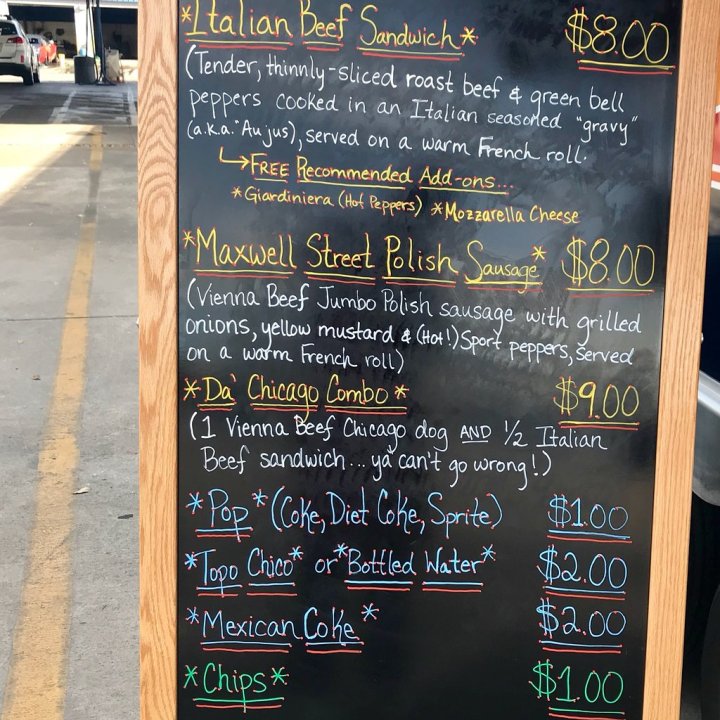 *Italian Beef Sandwich* $8.00
(Tender, thinnly-sliced roast beef & green bell
peppers cooked in an Italian seasoned "gravy"
(a.k.a. "Au jus), served on a warm French roll.
↳FREE Recommended Add-ons...
*Giardiniera (Hot Peppers) *Mozzarella Cheese
*Maxwell Street Polish Sausage* $8.00
(Vienna Beef Jumbo Polish sausage with grilled
onions, yellow mustard & (Hot!) Sport peppers, served
on a warm French roll)
*Da' Chicago Combo* $9.00
(1 Vienna Beef Chicago dog AND 1/2 Italian
Beef sandwich... ya' can't go wrong!)
*Pop* (Coke, Diet Coke, Sprite) $1.00
*Topo Chico* or *Bottled Water* $2.00
*Mexican Coke* $2.00
*Chips* $1.00